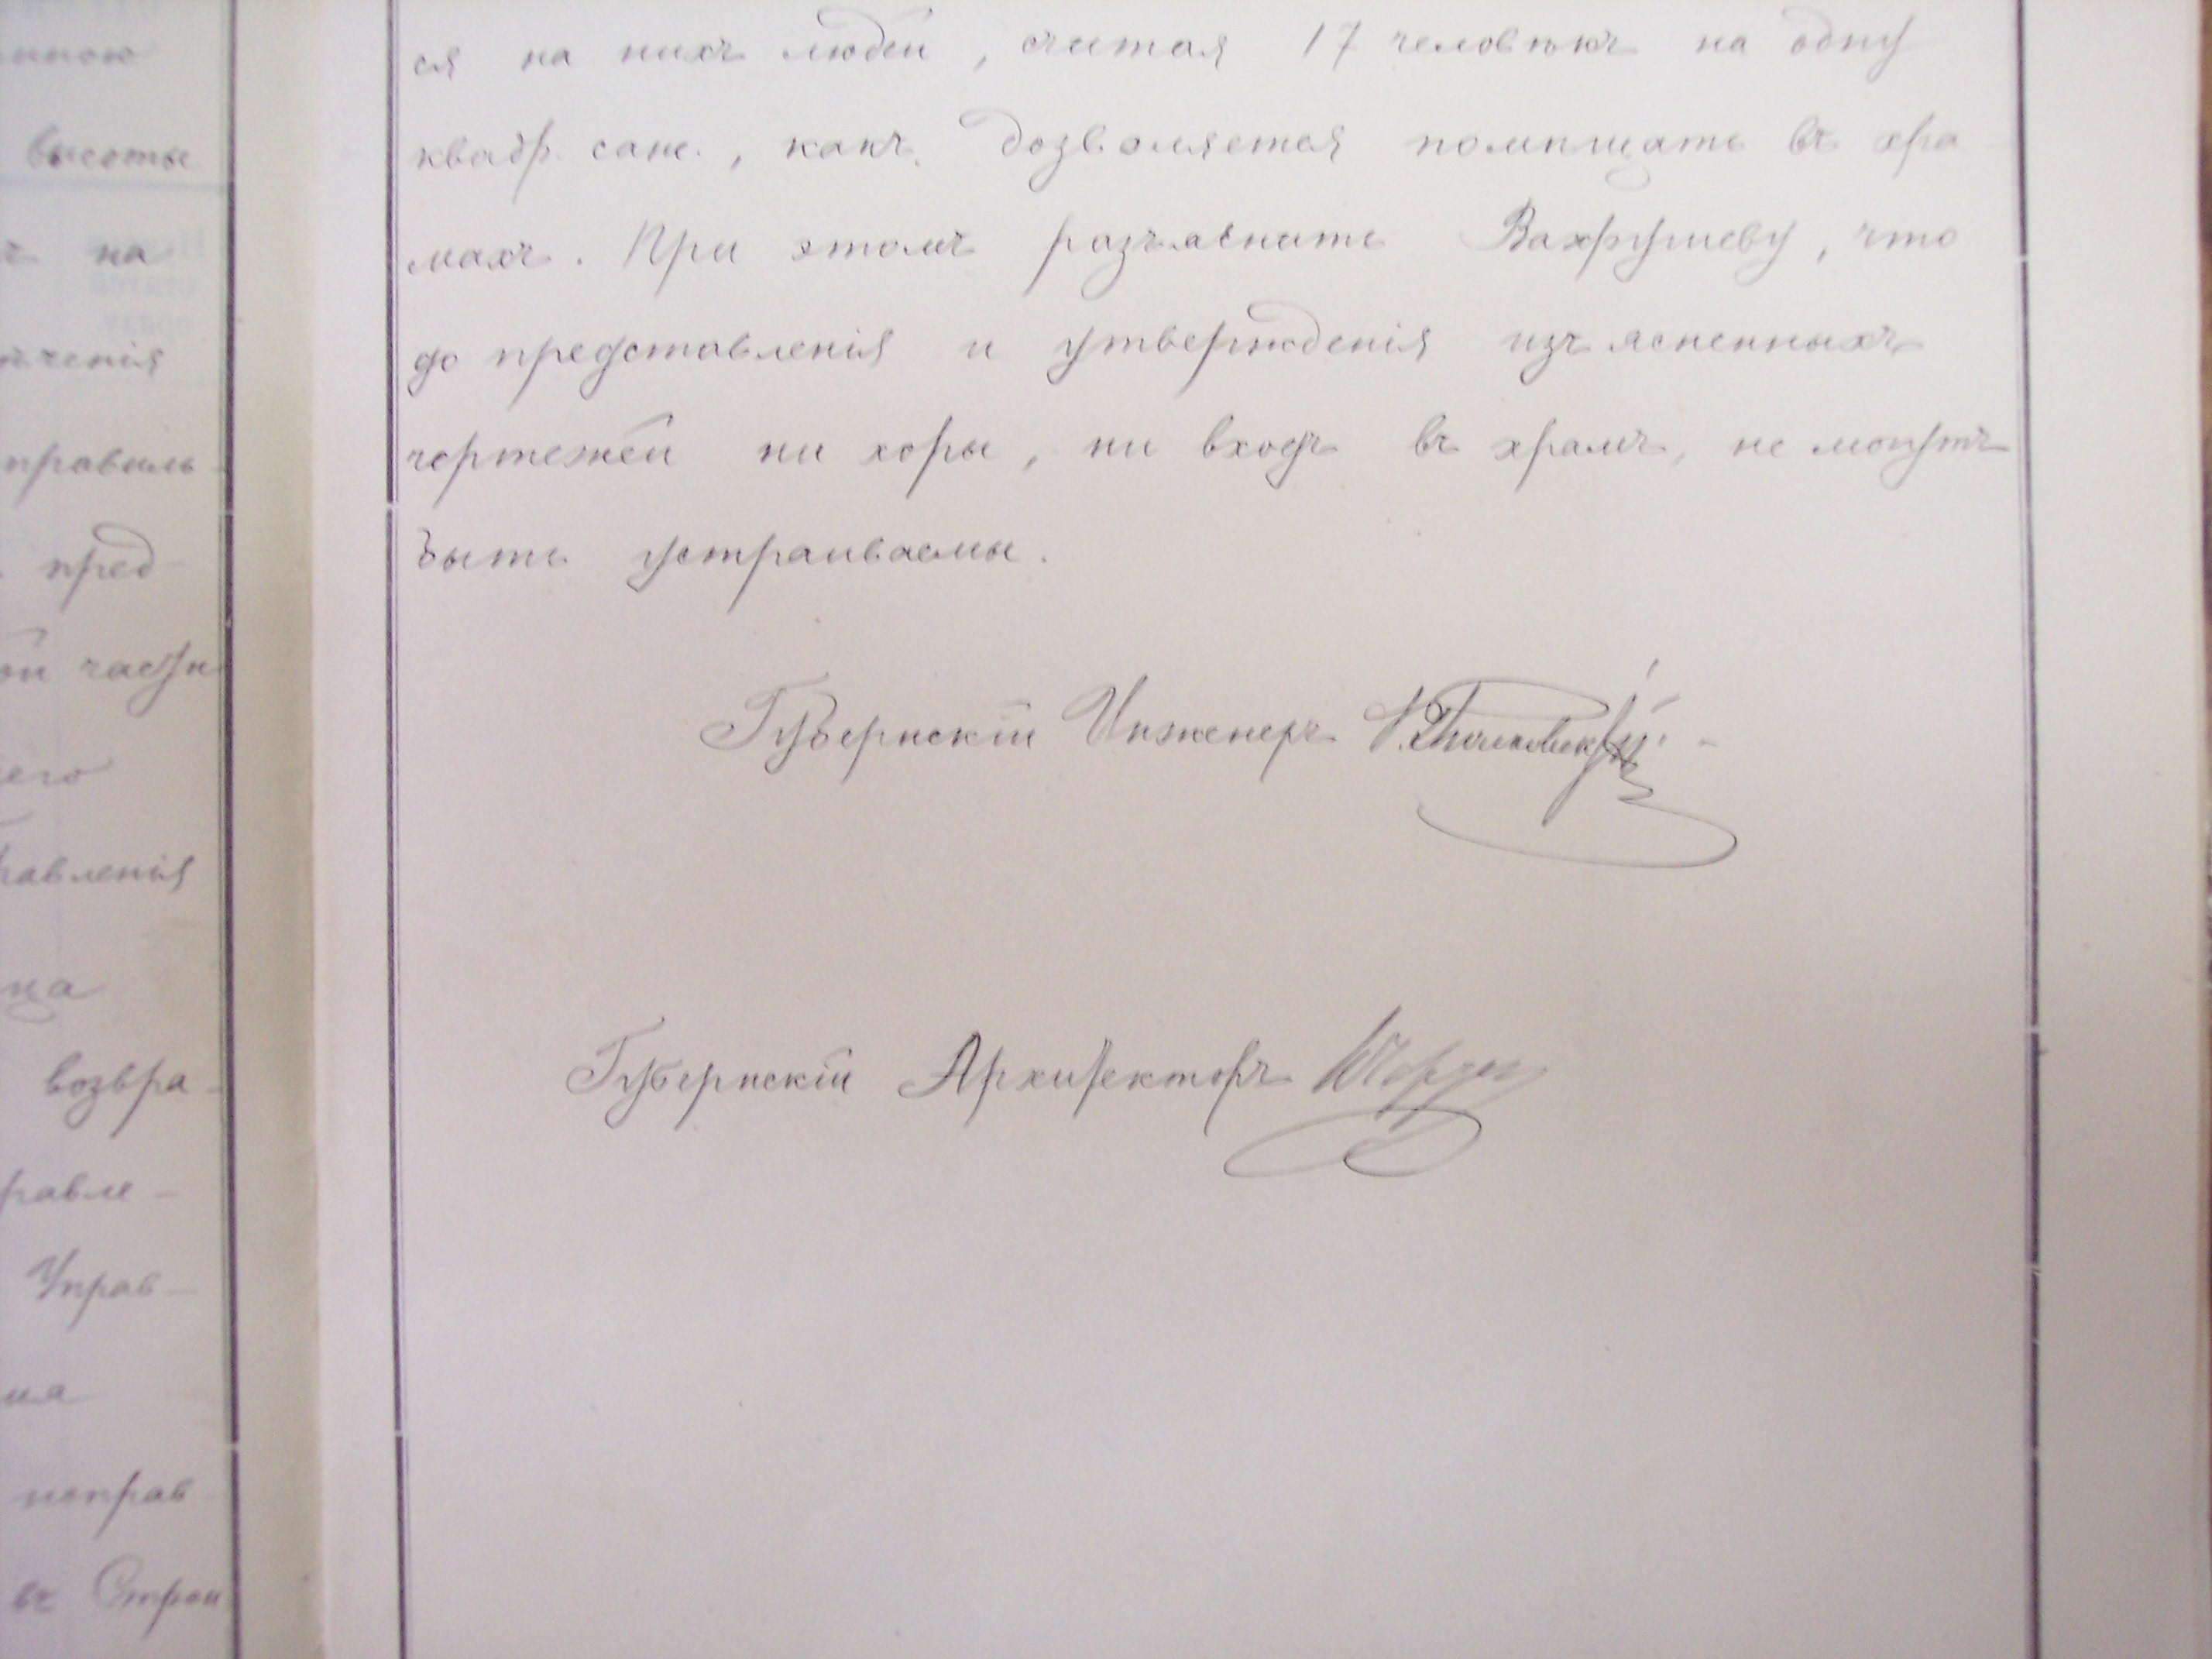 нною
высоты
на
ченія
правиль
пред-
ой части
его
равленія
возвра-
равле-
Управ-
ия
исправ-
въ Строи
ся на нихъ людей, считая 17 человѣкъ на одну
квадр. саж., какъ дозволяется помѣщать въ хра
махъ. При этомъ разъяснить Вахрушеву, что
до представленія и утвержденія изъясненныхъ
чертежей ни хоры, ни входъ въ храмъ, не могутъ
быть устраиваемы.
Губернскій Инженеръ
Губернскій Архитекторъ